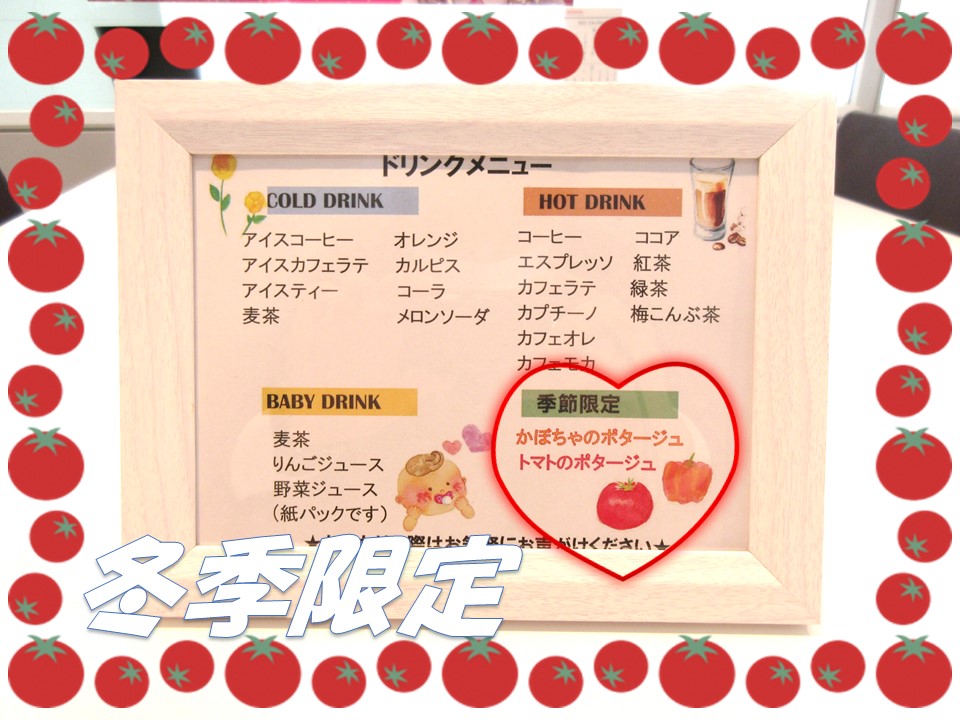 ドリンクメニュー
COLD DRINK
アイスコーヒー
アイスカフェラテ
アイスティー
麦茶
オレンジ
カルピス
コーラ
メロンソーダ
HOT DRINK
コーヒー
エスプレッソ
カフェラテ
カプチーノ
カフェオレ
カフェモカ
ココア
紅茶
緑茶
梅こんぶ茶
BABY DRINK
麦茶
りんごジュース
野菜ジュース
(紙パックです)
季節限定
かぼちゃのポタージュ
トマトのポタージュ
際はお気軽にお声がけください★
冬季限定